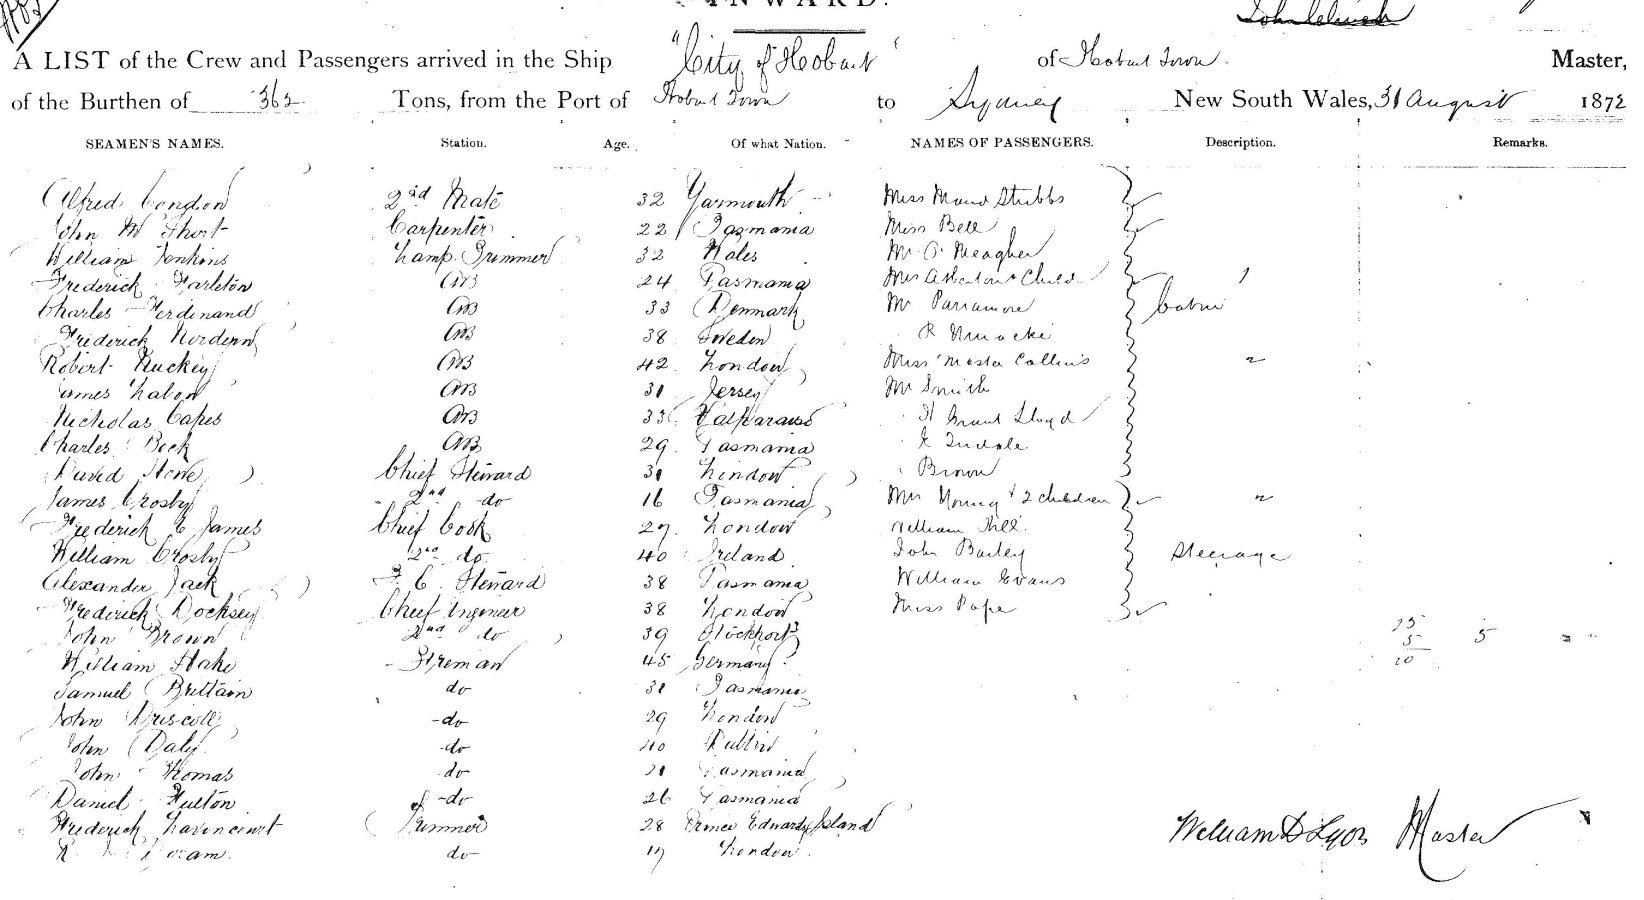 INWARD.
A LIST of the Crew and Passengers arrived in the Ship "City of Hobart" of Hobart Town. Master,
of the Burthen of 362 Tons, from the Port of Hobart Town to Sydney New South Wales, 31 August 1872
SEAMEN'S NAMES. Station. Age. Of what Nation. NAMES OF PASSENGERS. Description. Remarks.
Alfred Congdon 2nd Mate 32 Yarmouth Miss Maud Stubbs
John W Short Carpenter 22 Tasmania Miss Bell
William Jenkins Lamp Trimmer 32 Wales Mr Meagher
Frederick Tarleton AB 24 Tasmania Mrs & Child 1
Charles Ferdinand AB 33 Denmark Mr Parramore Cabin
Frederick Nordenn AB 38 Sweden R
Robert Huckey AB 42 London Miss Master Collins 2
James AB 31 Jersey Mr Smith
Nicholas Capes AB 33 Valparaiso H Grant Lloyd
Charles Beck AB 29 Tasmania E Tindale
David Stowe Chief Steward 31 London Brown
James Crosby 2nd do 16 Tasmania Mrs Young & 2 children 2
Frederick C James Chief Cook 27 London William Hill
William Crosby 2nd do 40 Ireland John Bailey Steerage
Alexander Jack F. C. Steward 38 Tasmania William Evans
Frederick Docksey Chief Ingineer 38 London Miss Pope
John Brown 2nd do 39 Stockport 25 5 5
William Hake Fireman 45 Germany 20
Samuel Brittain do 31 Tasmania
John Driscoll do 29 London
John Daly do 40 Dublin
John Thomas do 21 Tasmania
Daniel Fulton do 26 Tasmania
Frederick Lavencourt Trimmer 28 Prince Edwards Island William D Lyons Master
do 17 London